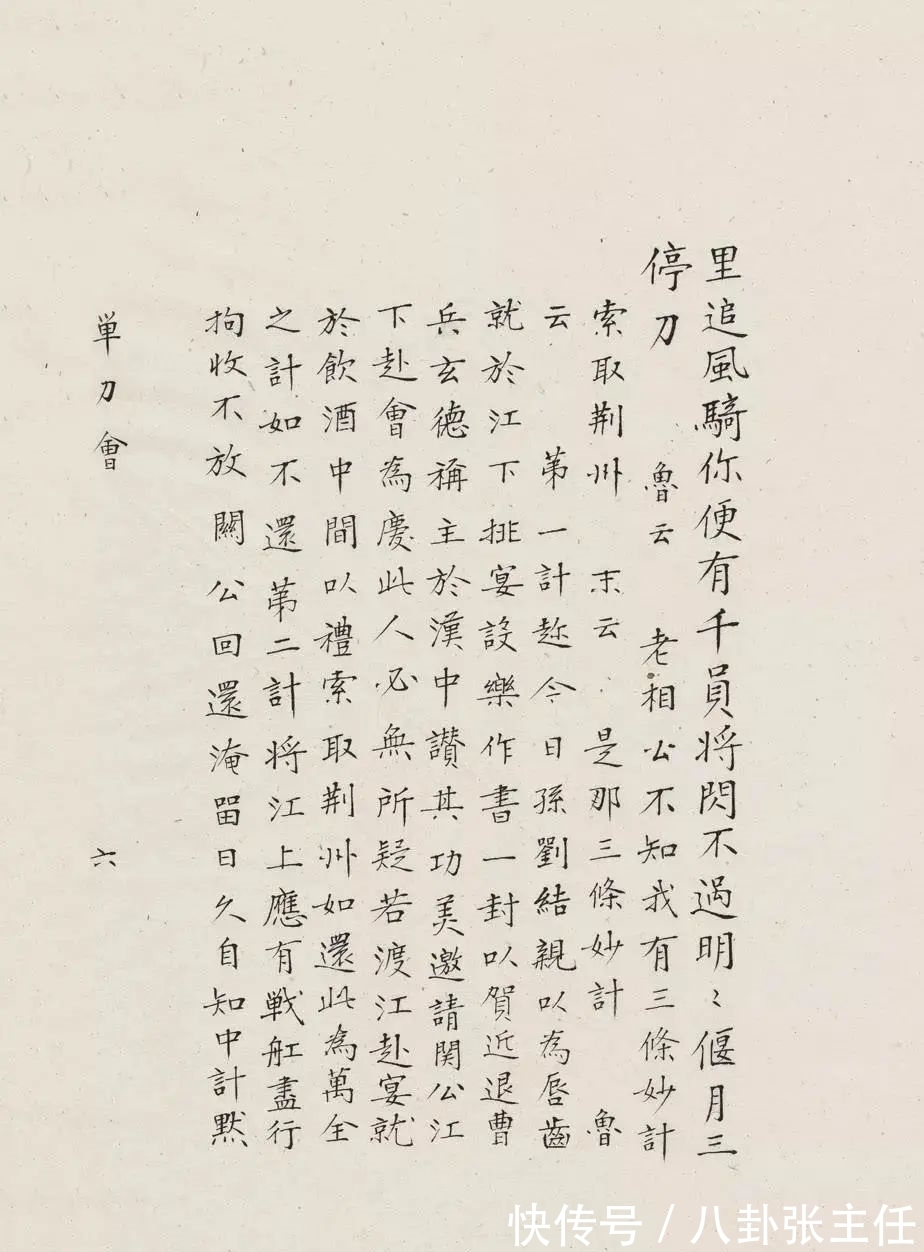 里追風騎你便有千員將閃不過明〻偃月三
停刀　魯云　老相公不知我有三條妙計
索取荆州　末云　是那三條妙計　魯
云　苐一計趂今日孫劉結親以為唇齒
就於江下排宴設樂作書一封以賀近退曹
兵玄德稱主於漢中讃其功美邀請関公江
下赴會為慶此人必無所疑若渡江赴宴就
於飲酒中間以禮索取荆州如還此為萬全
之計如不還苐二計將江上應有戦舡盡行
拘收不放關公回還淹留日久自知中計黙
単刀會　六
快传号 / 八卦张主任